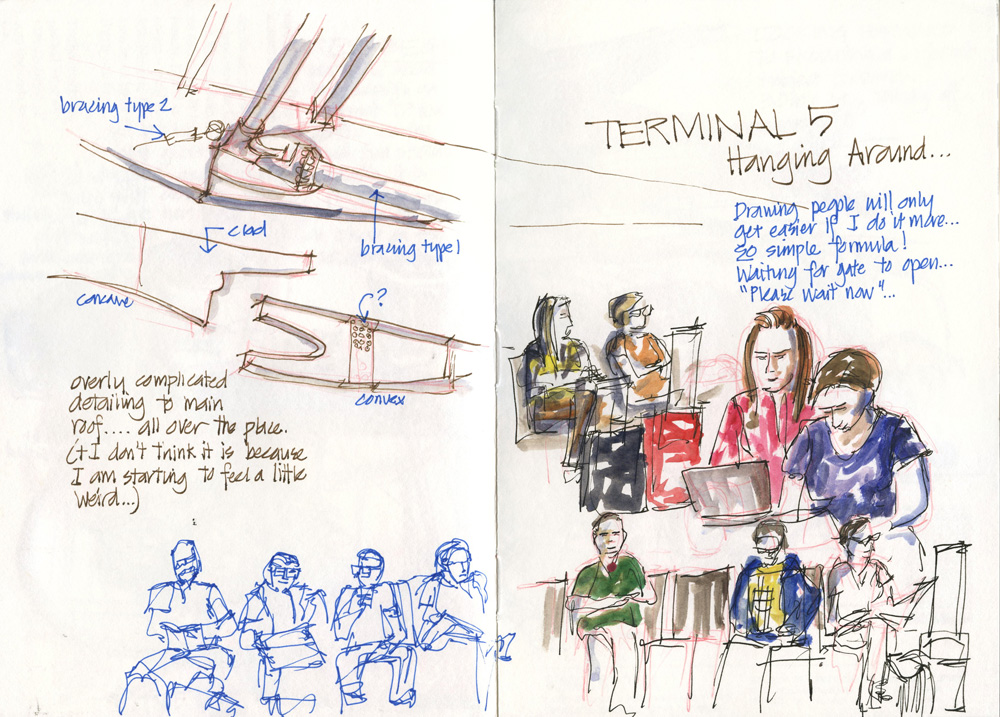 bracing type 2
bracing type 1
clad
concave
?
convex
overly complicated
detailing to main
roof..... all over the place.
(+ I don't think it is because
I am starting to feel a little
weird...)
TERMINAL 5
Hanging Around...
Drawing people will only
get easier if I do it more...
so simple formula!
Waiting for gate to open...
"Please wait now"...